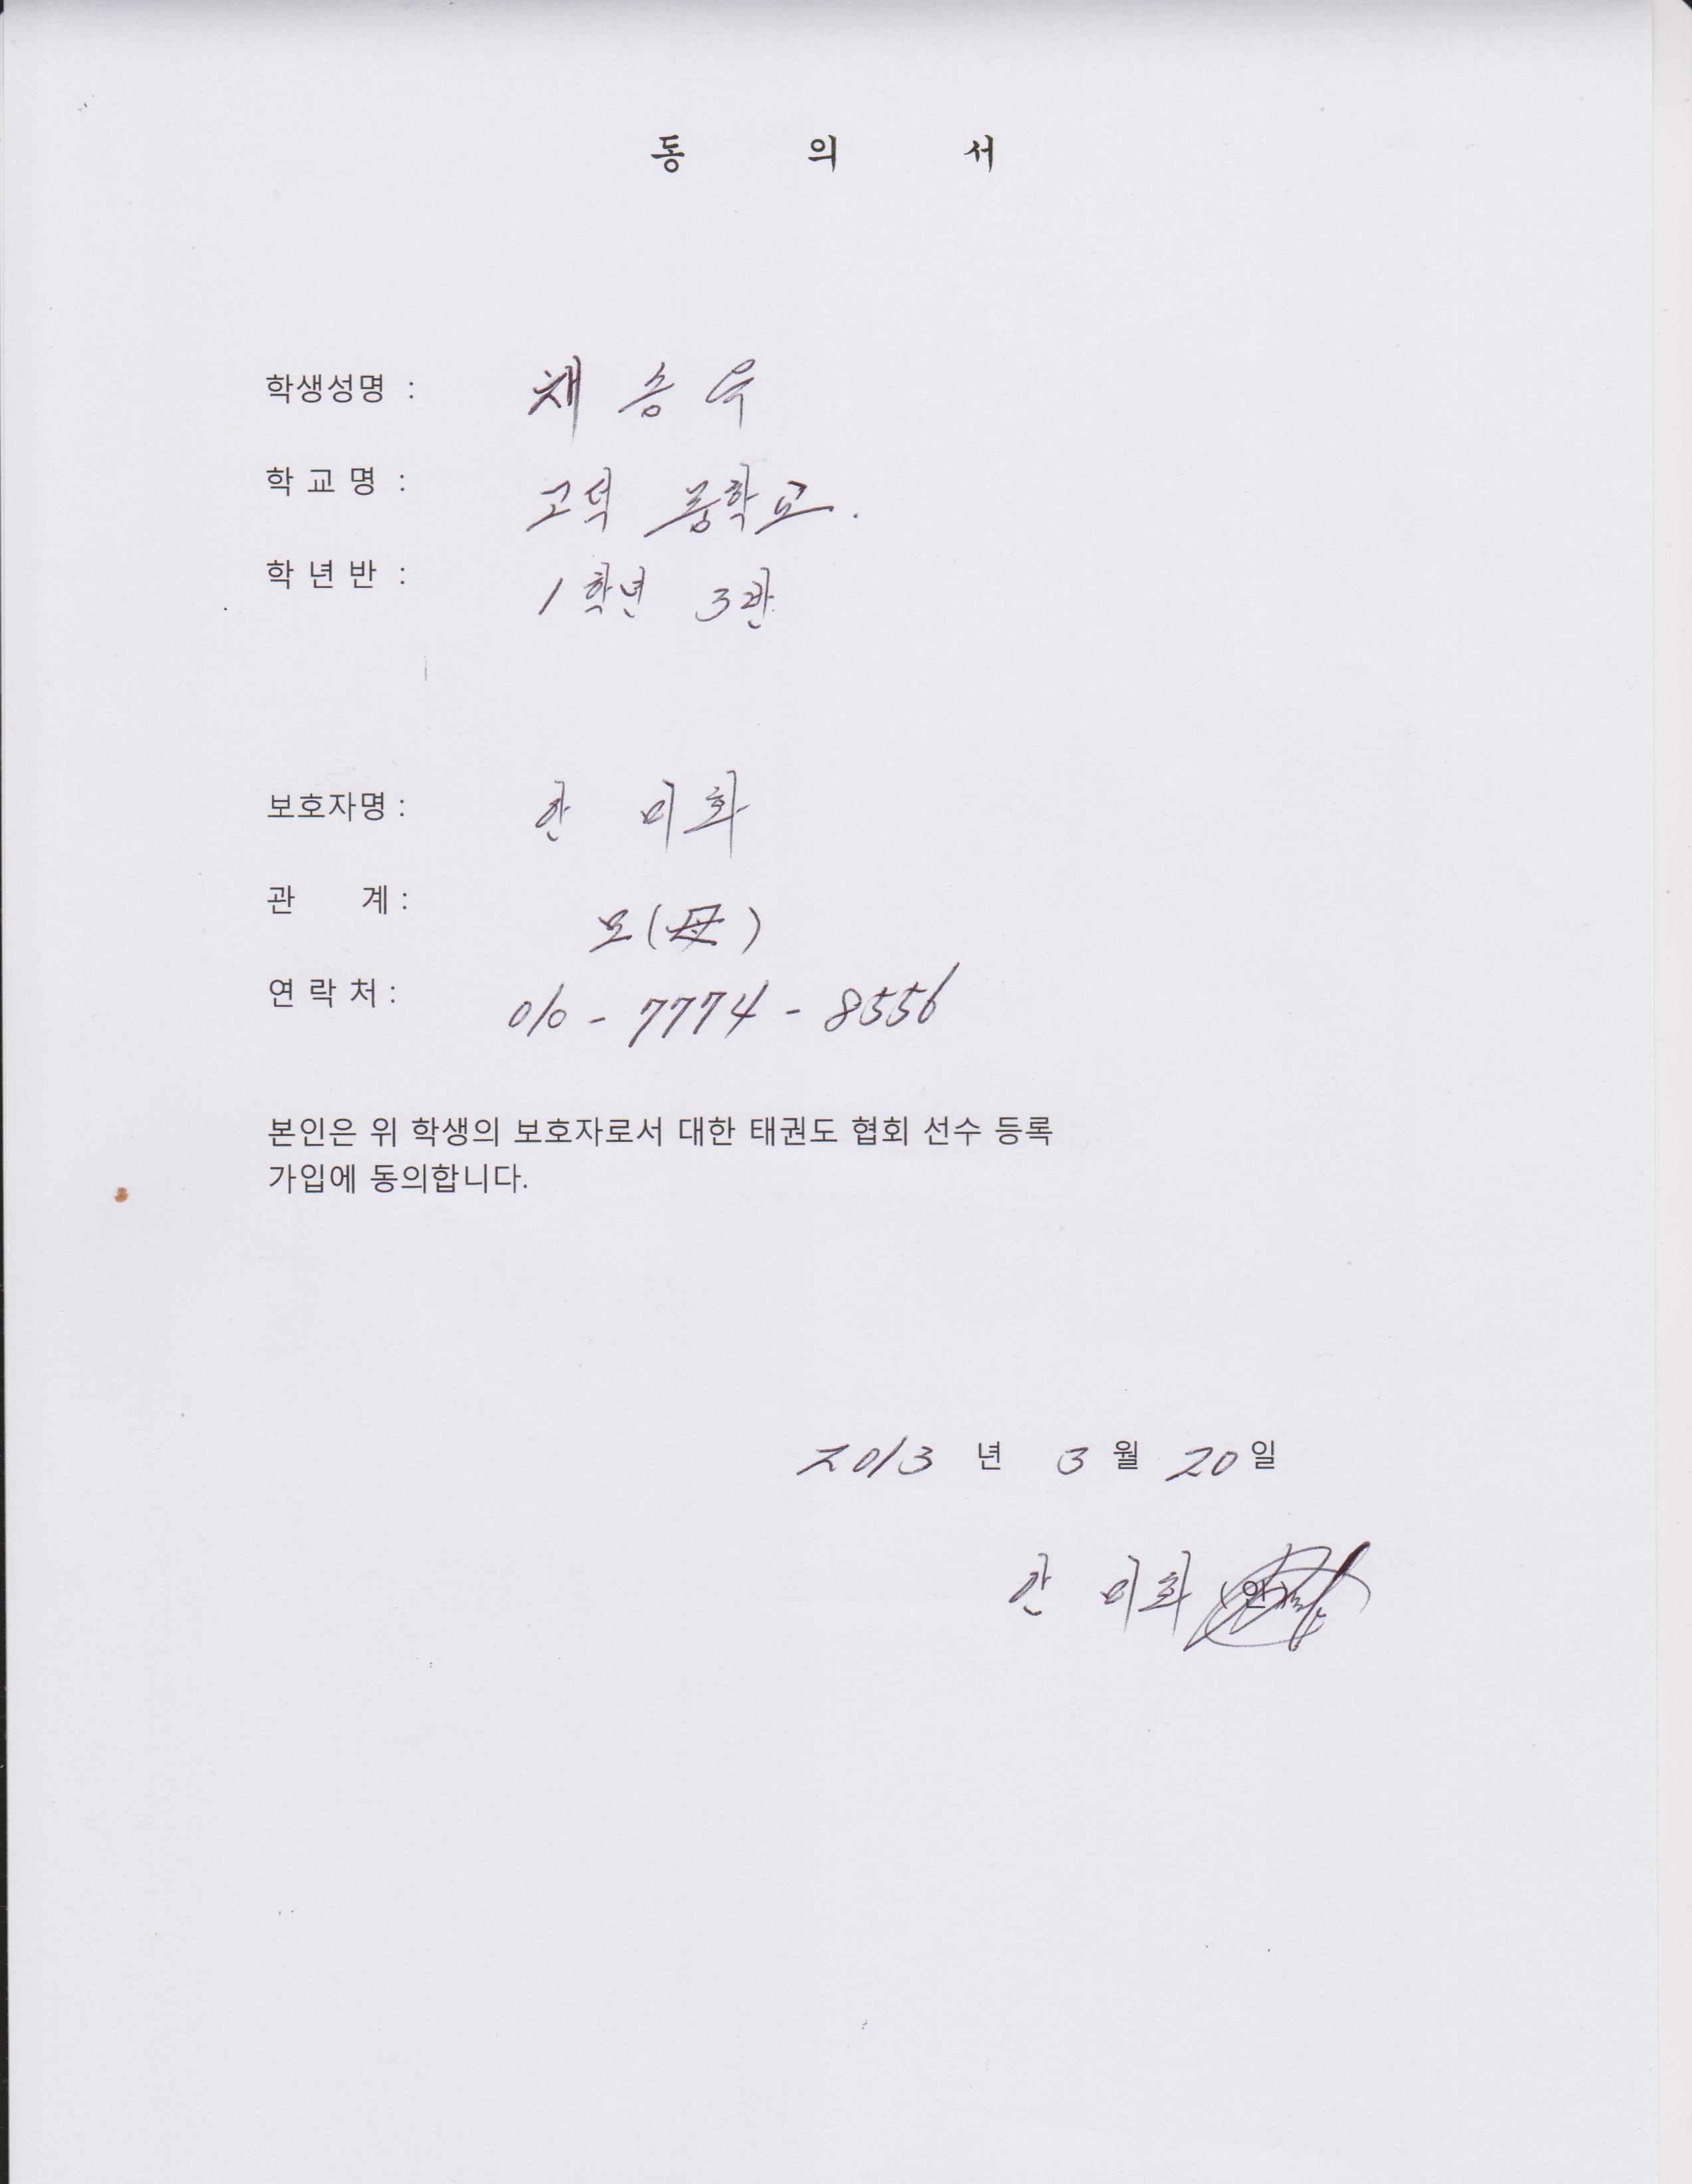 동 의 서
학생성명 : 채 송 욱
학 교 명 : 고덕 중학교.
학 년 반 : 1학년 3반
보호자명 : 한 미화
관 계 : 모(母)
연 락 처 : 010 - 7774 - 8556
본인은 위 학생의 보호자로서 대한 태권도 협회 선수 등록
가입에 동의합니다.
2013 년 3 월 20 일
한 미화 (인)